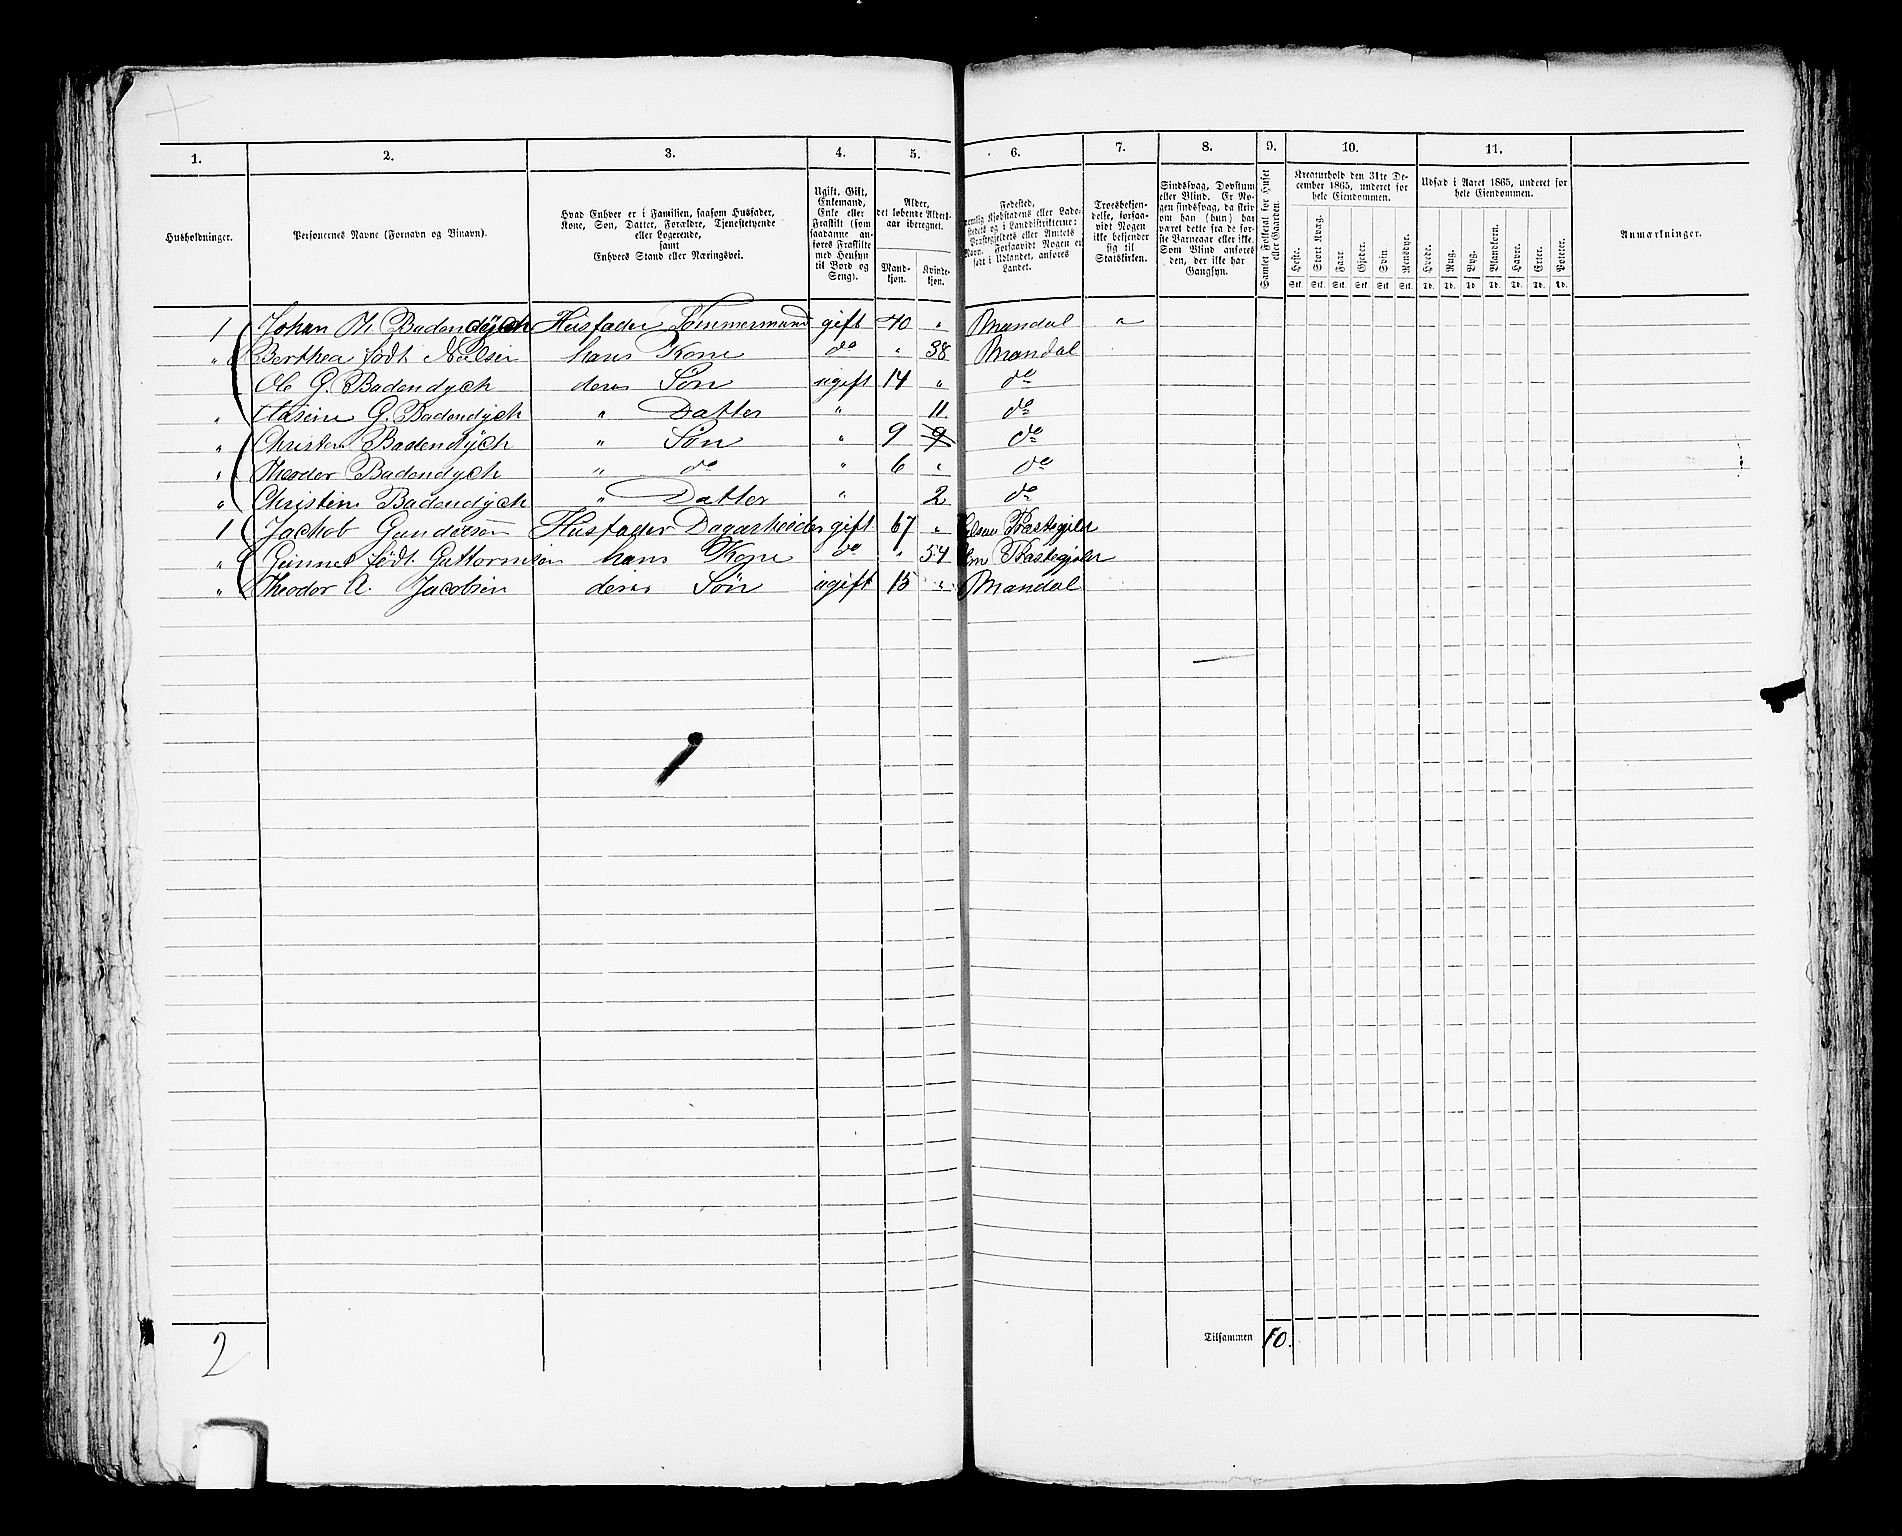 1. 2. 3. 4. 5. 6. 7. 8. 9. 10. 11.
Husholdninger.
Personernes Navne (Fornavn og Binavn).
Hvad Enhver er i Familien, saasom Husfader,
Kone, Søn, Datter, Forældre, Tjenestetyende
eller Logerende,
samt
Enhvers Stand eller Næringsvei.
Ugift, Gift,
Enkemand,
Enke eller
Fraskilt (som
saadanne an-
føres Fraskilte
med Hensyn
til Bord og
Seng).
Alder,
det løbende Alders-
aar iberegnet.
Mand-
kjøn.
Kvinde-
kjøn.
Fødested,
nemlig Kjøbstadens eller Lade-
stedets og i Landdistrikterne:
Præstegjeldets eller Amtets
Navn. Forsaavidt Nogen er
født i Udlandet, anføres
Landet.
Troesbekjen-
delse, forsaa-
vidt Nogen
ikke bekjender
sig til
Statskirken.
Sindssvag, Døvstum
eller Blind. Er No-
gen sindssvag, da skriv
om han (hun) har
været dette fra de før-
ste Barneaar eller ikke.
Som Blind anføres
den, der ikke har
Gangsyn.
Samlet Folketal for Huset
eller Gaarden.
Kreaturhold den 31te De-
cember 1865, underet for
hele Eiendommen.
Heste. Stort Kvæg. Faar Gjeder. Svin. Rensdyr.
Stk. Stk. Stk. Stk. Stk. Stk.
Udsæd i Aaret 1865, underet for
hele Eiendommen.
Hvede. Rug. Byg. Blandkorn. Havre. Erter. Poteter.
Td. Td. Td. Td. Td. Td. Td.
Anmærkninger.
1 Johan M. Badendych Husfader Tømmermand gift 40 " Mandal "
" Berthea født Nielsen hans Kone do " 38 Mandal
Ole G. Badendych deres Søn ugift 14 " do
" G. Badendych " Datter " 11 do
" Christen Badendych " Søn " 9 9 do
" Theodor Badendych " do " 6 " do
" Christine Badendych " Datter " 2 do
1 Jackob Gundersen Husfader Dagarbeider gift 67 " Præstegjeld
" Gunnel født Guttormsen hans Kone do " 54 Præstegjeld
" Theodor A. Jacobsen deres Søn ugift 15 " Mandal
2
Tilsammen 10.